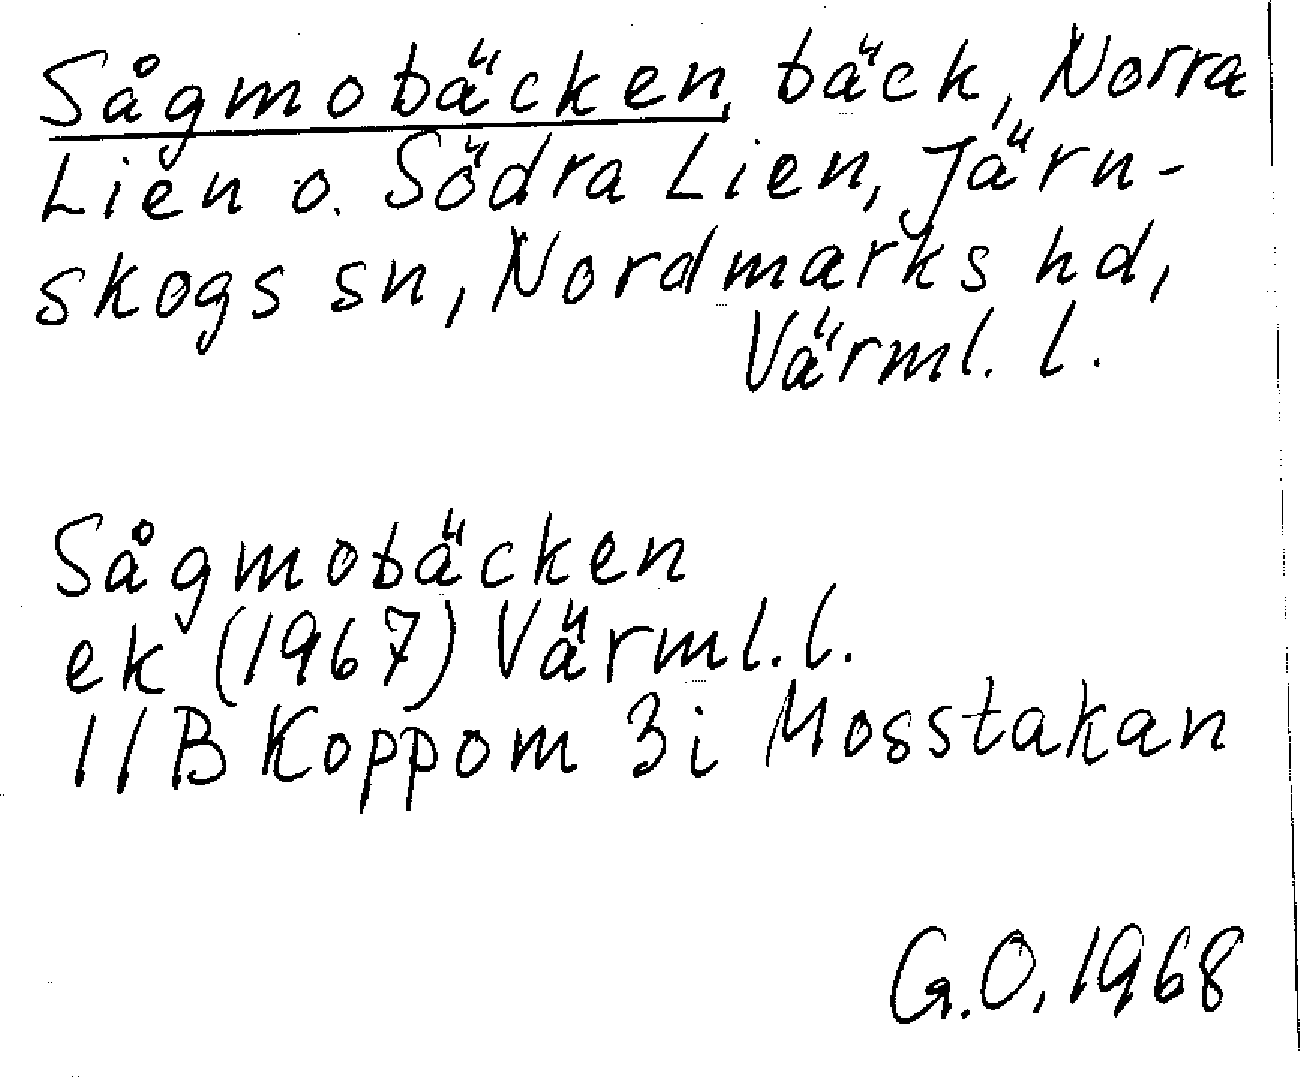 Sågmobäcken, bäck, Norra
Lien o. Södra Lien, Järn-
skogs sn, Nordmarks hd,
Värml. l.
Sågmobäcken
ek (1967) Värml. l.
11B Koppom 3i Mosstakan
G.O, 1968